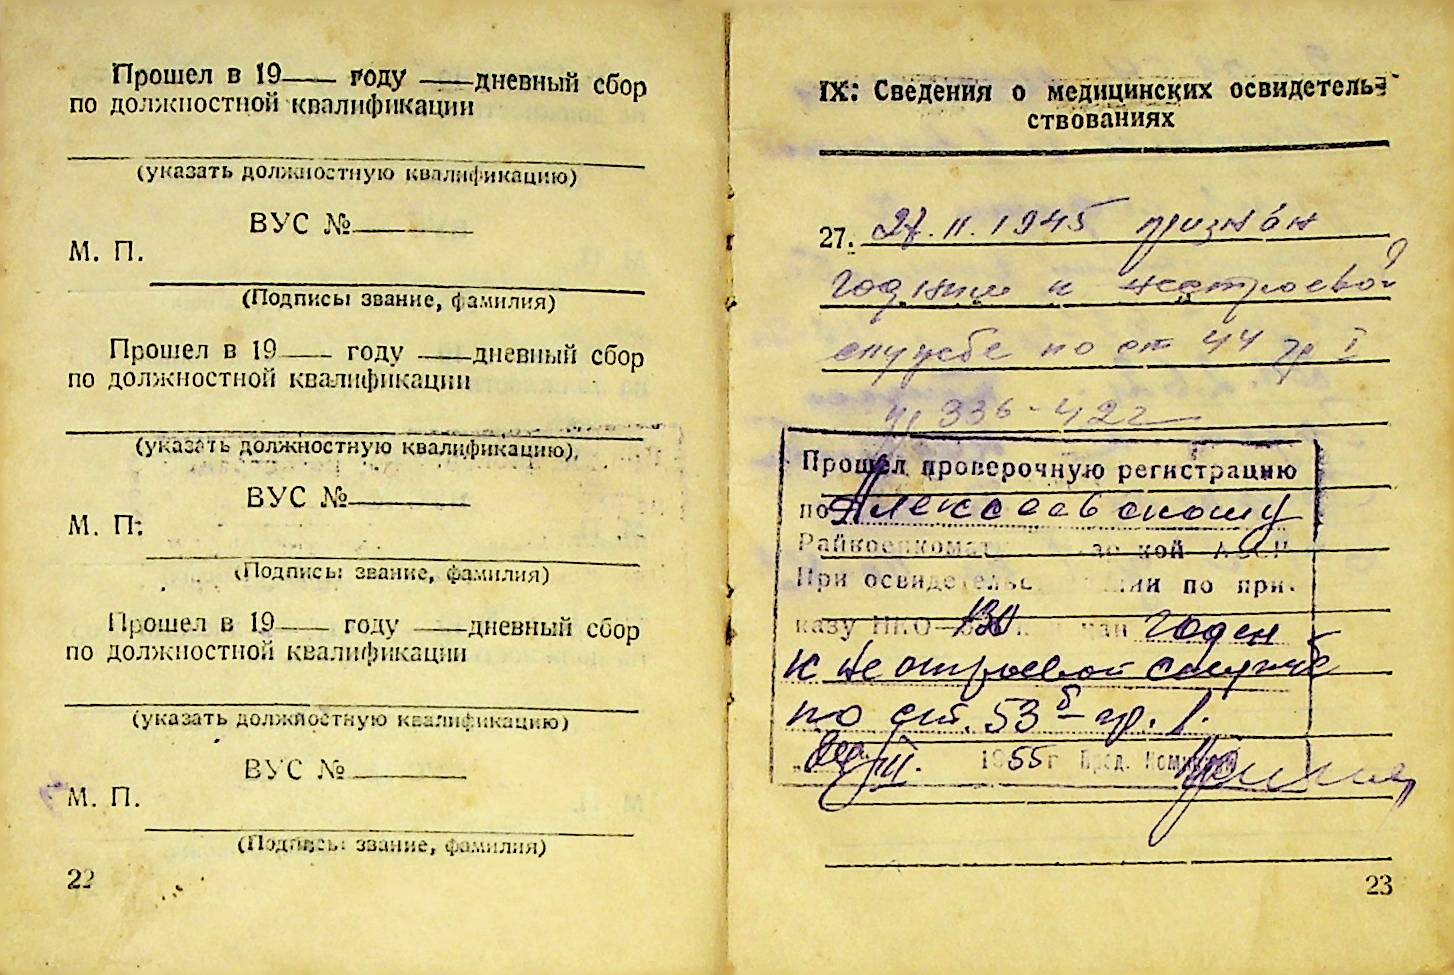 Прошел в 19 году дневный сбор
по должностной квалификации
(указать должностную квалификацию)
ВУС №
М. П.
(Подписы звание, фамилия)
Прошел в 19 году дневный сбор
по должностной квалификации
(указать должностную квалификацию)
ВУС №
М. П.
(Подписы звание, фамилия)
Прошел в 19 году дневный сбор
по должностной квалификации
(указать должностную квалификацию)
ВУС №
М. П.
(Подписы звание, фамилия)
22
IX. Сведения о медицинских освидетель-
ствованиях
27. 27.II.1945 признан
годным к нестроевой
службе по ст 44 гр I
336-42г
Прошел проверочную регистрацию
по Алексеевскому
Райвоенкомату
При освидетельс ии по при-
казу НКО 130 годен
к не строевой службе
по ст. 53б - гр. 1.
III. 1955г Пред. Комиссии
23